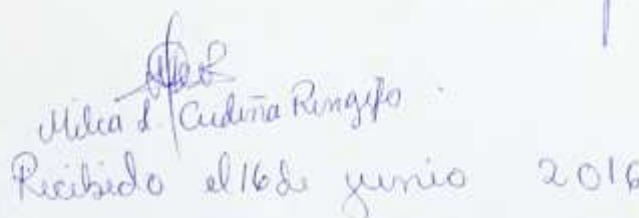 Milca L. Cudiña Rengifo.
Recibido el 16 de junio 2016